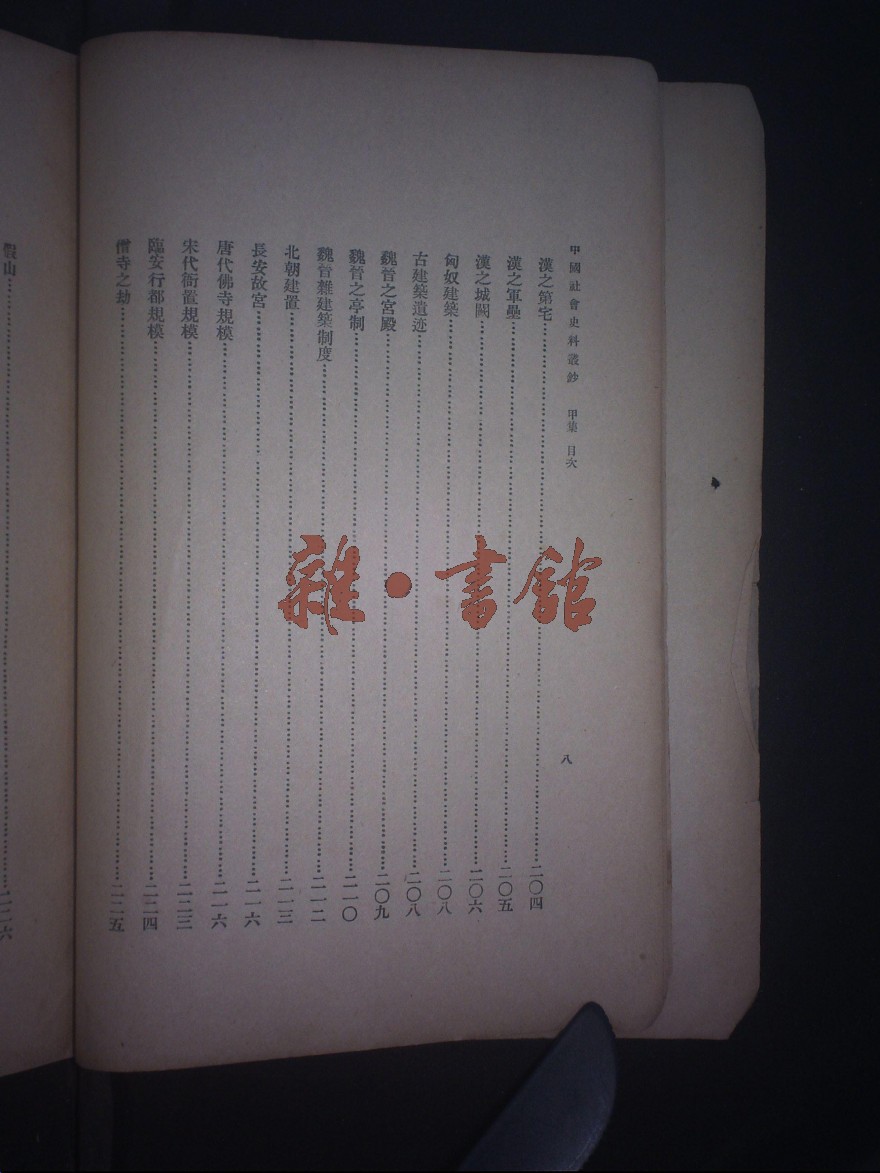 中國社會史料叢鈔 甲集 目次 八
漢之第宅……二〇四
漢之軍壘……二〇五
漢之城闕……二〇六
匈奴建築……二〇八
古建築遺迹……二〇八
魏晉之宮殿……二〇九
魏晉之亭制……二一〇
魏晉雜建築制度……二一二
北朝建置……二一三
長安故宮……二一六
唐代佛寺規模……二一六
宋代衙置規模……二二三
臨安行都規模……二二四
僧寺之劫……二二五
假山……二二六
雜·書館